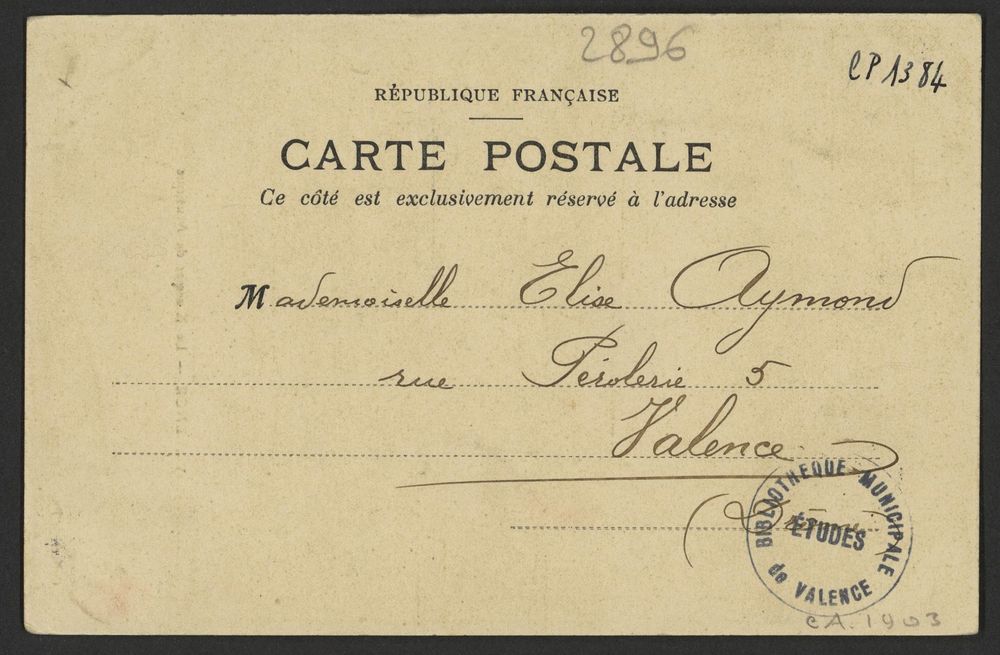 2896
CP 1384
RÉPUBLIQUE FRANÇAISE
CARTE POSTALE
Ce côté est exclusivement réservé à l'adresse
Mademoiselle Elise Aymond
rue Pérolerie 5
Valence
(Drôme)
BIBLIOTHEQUE MUNICIPALE
ÉTUDES
de VALENCE
CA. 1903